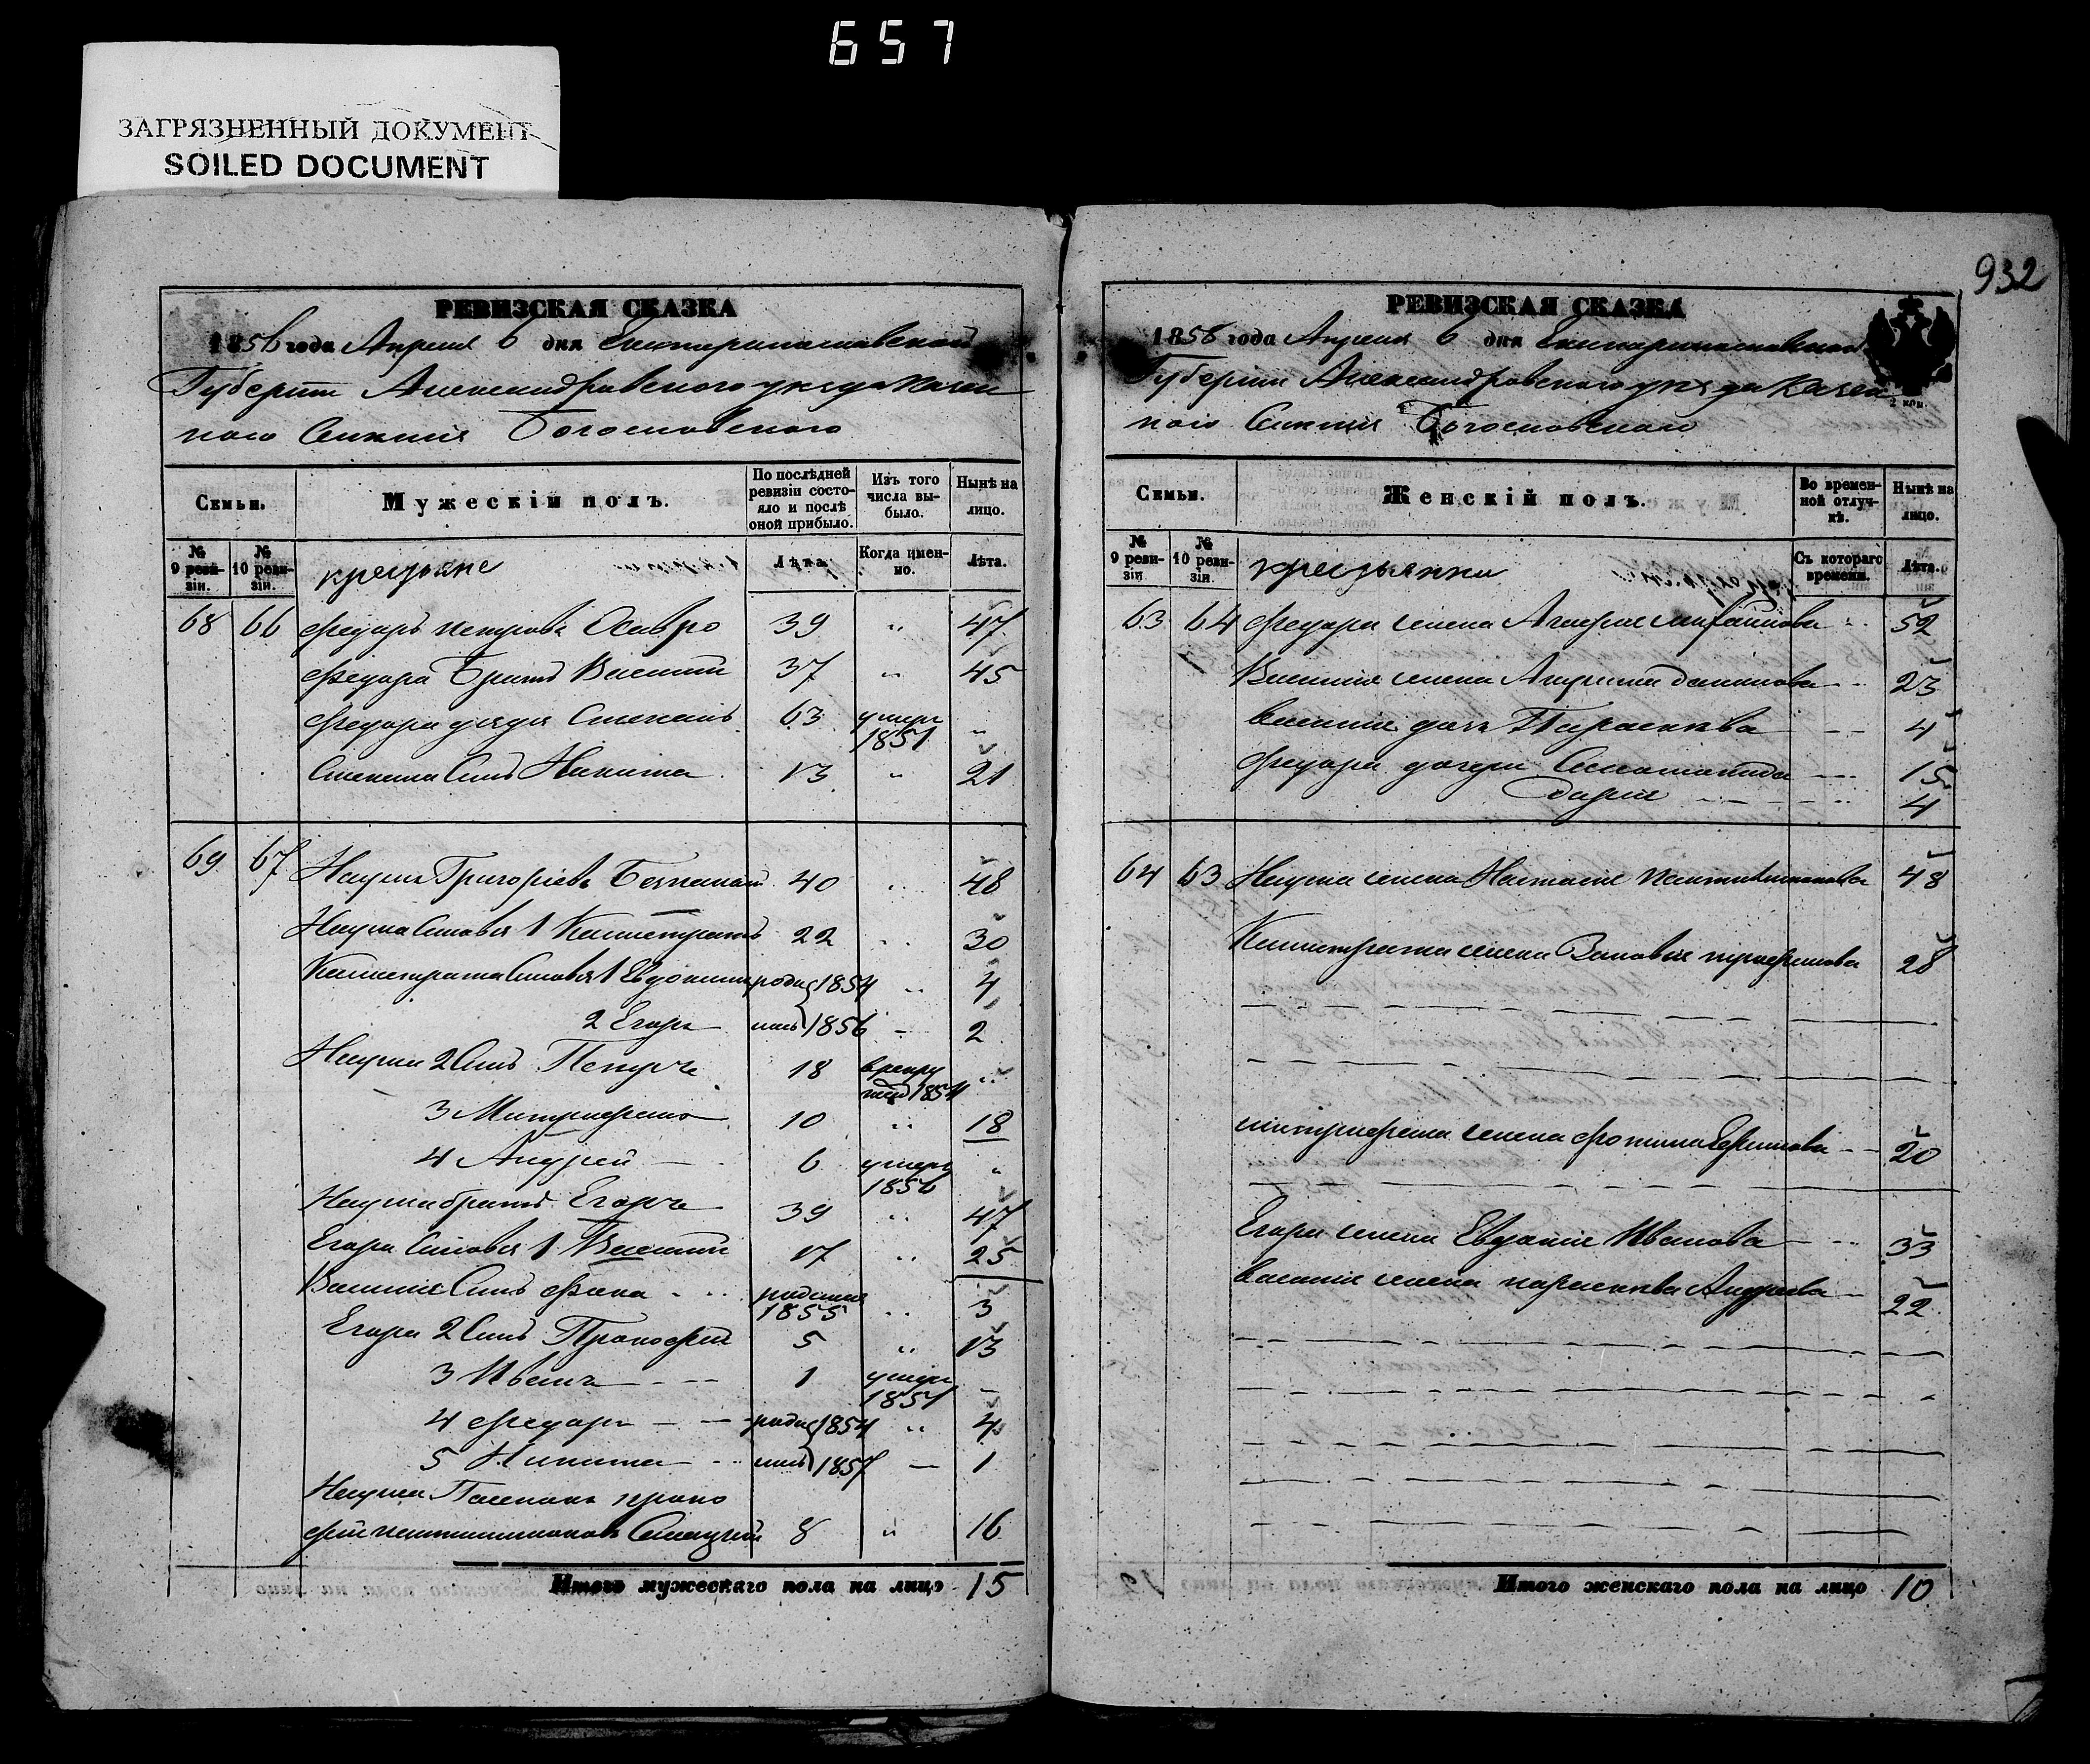 657
ЗАГРЯЗНЕННЫЙ ДОКУМЕНТ
SOILED DOCUMENT
РЕВИЗСКАЯ СКАЗКА
1856 года Апреля 6 дня Екатеринославской
Губернии Александровского уезда казен
ного Селения Богословского
Семьи.
Мужескій полъ.
По послѣдней ревизіи состояло и послѣ оной прибыло.
Изъ того числа выбыло.
Нынѣ на лицо.
№ 9 ревизіи.
№ 10 ревизіи.
крестьяне
Лѣта.
Когда именно.
Лѣта.
68 66 Федоръ Петровъ 39 " 47
Федора Братъ Василий 37 " 45
Федора дядя Степанъ 63 умеръ 1851 "
Степана Сынъ Никита 13 " 21
69 67 Наумъ Григорьевъ 40 " 48
Наума Сыновья 1 Калистратъ 22 " 30
Калистрата Сыновья 1 Евдокимъ роди 1854 " 4
2 Егоръ лись 1856 - 2
Наума 2 Сынъ Петръ 18 в рекру ты 1854 "
3 Митрофанъ 10 " 18
4 Андрей 6 умеръ 1856 "
Наума братъ Егоръ 39 " 47
Егора Сыновья 1 Василий 17 " 25
Василия Сынъ Фока родился 1855 " 3
Егора 2 Сынъ Прокофий 5 " 13
3 Иванъ 1 умеръ 1851 -
4 Федоръ роди 1854 " 4
5 Никита лись 1857 - 1
Наума Пасынокъ Проко
фий 8 " 16
Итого мужескаго пола на лицо 15
932
РЕВИЗСКАЯ СКАЗКА
1856 года Апреля 6 дня Екатеринославской
Губернии Александровского уезда казен
ного Селения Богословского
2 коп.
Семьи.
Женскій полъ.
Во временной отлучкѣ.
Нынѣ на лицо.
№ 9 ревизіи.
№ 10 ревизіи.
крестьянки
Съ котораго времени.
Лѣта.
63 64 Федора жена Михайлова 52
Василия жена Данилова 23
Василия дочь Парасковья 4
Федора дочери 15
Дарья 4
64 63 Наума жена Настасия 48
Калистрата жена Трофимова 28
Митрофана жена Ефимова 20
Егора жена Евдокия Иванова 33
Василия жена Парасковья Андреева 22
Итого женскаго пола на лицо 10